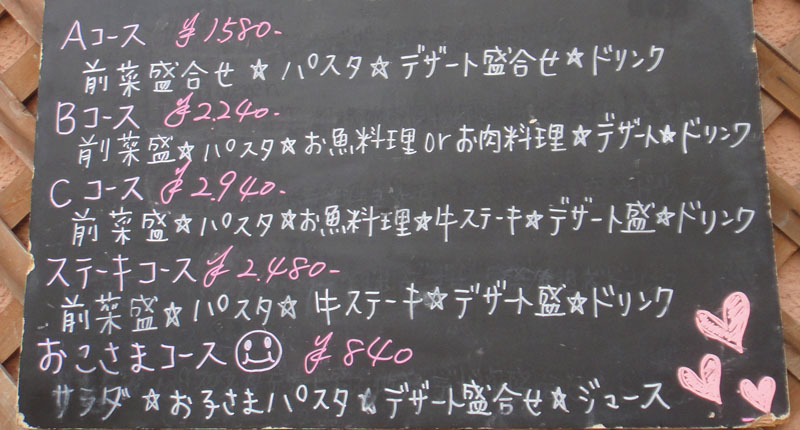 Aコース ¥1580-
前菜盛合せ☆パスタ☆デザート盛合せ☆ドリンク
Bコース ¥2.240-
前菜盛☆パスタ☆お魚料理orお肉料理☆デザート☆ドリンク
Cコース ¥2.940-
前菜盛☆パスタ☆お魚料理☆牛ステーキ☆デザート盛☆ドリンク
ステーキコース ¥2.480-
前菜盛☆パスタ☆牛ステーキ☆デザート盛☆ドリンク
おこさまコース ¥840
サラダ☆お子さまパスタ☆デザート盛合せ☆ジュース